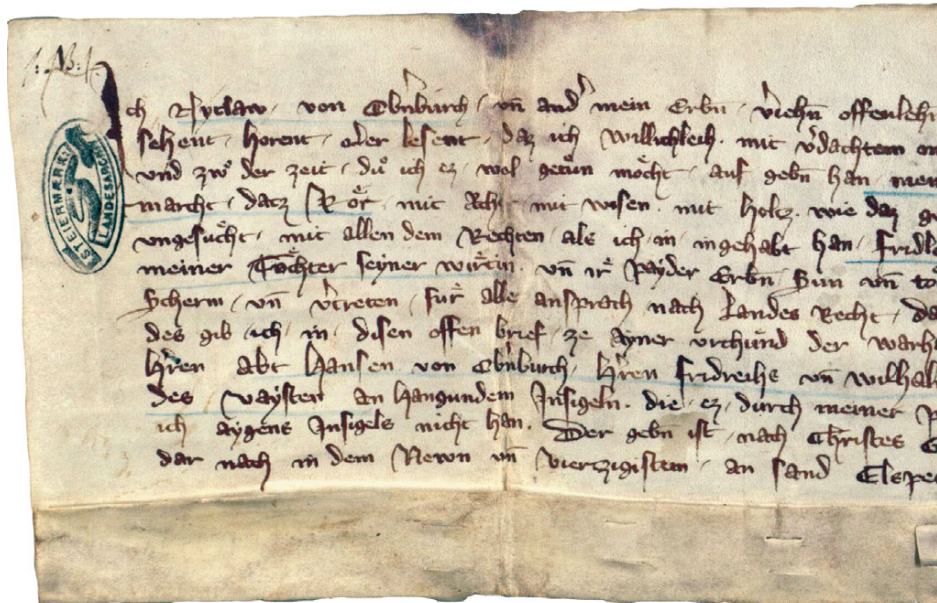 Ich Nyclaw von Obnburch vn and mein Erbn viehn offenleich
sehent horent oder lesent daz ich willichleich mit vdachtem
vnd zwo der zeit du ich ez wol getun moecht auf gebn han mein
marcht datz mit Acher mit wisen mit holtz wie daz
vngesucht mit allen dem Rechten als ich in ingehabt han
meiner Tochter seyner wirtin vn ir payder Erbn Sun vn
Scherm vn vtreten fur alle ansprach nach Landes Recht
des gib ich in disen offen brief ze ayner vrchund der
hren abt Hansen von Obnburch hren fridreihs vn
des vaysten an hangundem Insigeln die ez durch meiner
ich aygens Insigels nicht han Der gebn ist nach Christes
dar nach in dem Newn vn vierczigistem an sand
STEIERMÆRK. LANDESARCHIV